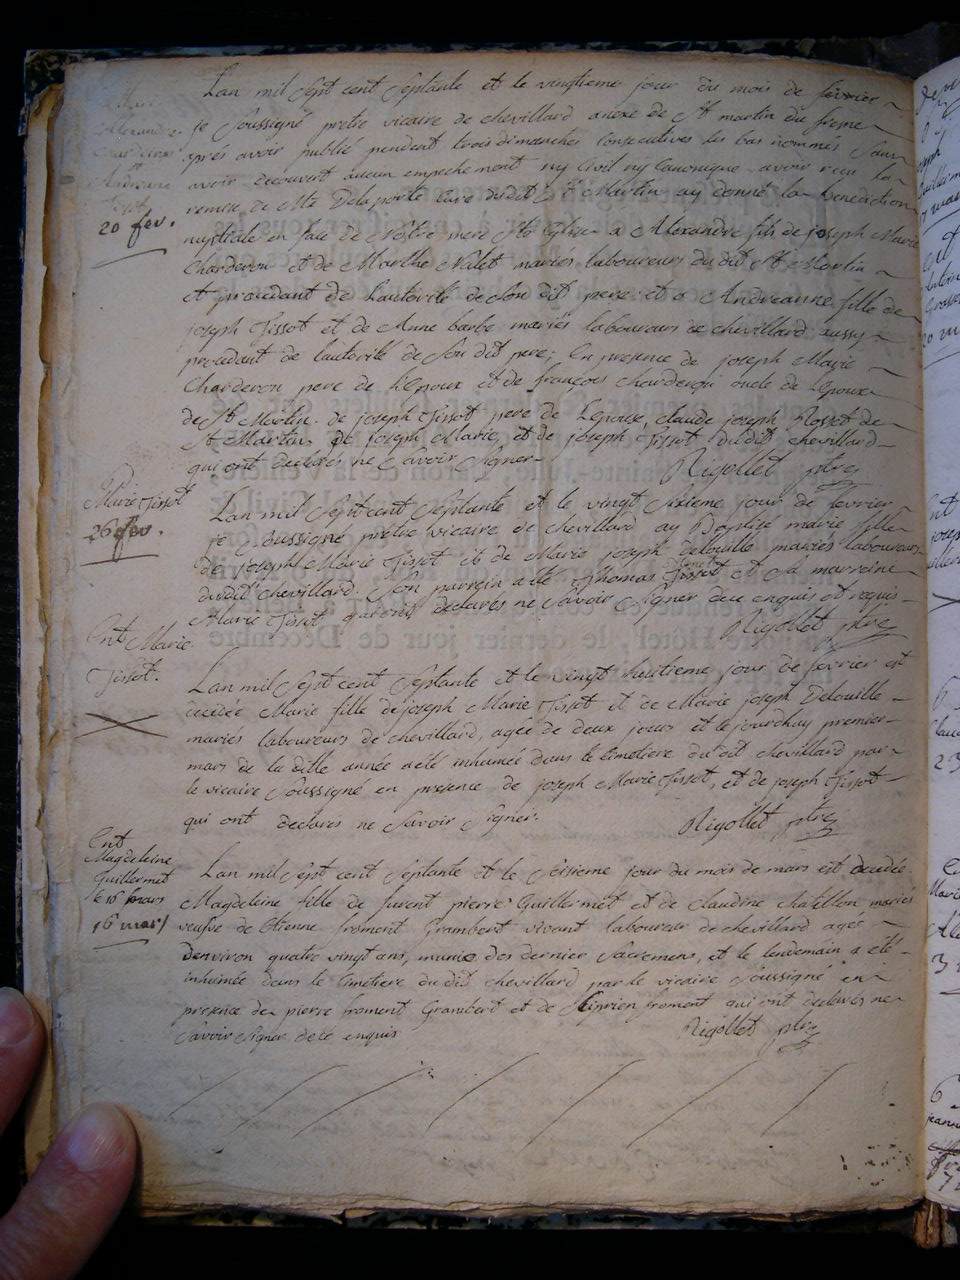 Lan mil Sept cent Septante et le vingtieme jour du mois de fevrier
je Soussigné pretre vicaire de chevillard anexe de St martin du fresne
aprés avoir publié pendent trois dimanches Consecutives les bas nommés Sans
avoir decouvert aucun empechement ny Civil ny Canonique avoir reçu la
remise de Mre Delaporte Curé dudit St Martin ay donné la benediction
20 fev.
nuptiale en face de Nostre mere Ste Eglise a Alexandre fils de joseph Marie
Charderon et de Marthe Nalet mariés laboureurs du dit St Martin
et procedant de lautorité de Son dit pere et a Andreanne fille de
joseph Tissot et de Anne barbe mariés laboureurs de chevillard aussy
procedant de lautorité de Son dit pere; En presence de joseph Marie
Charderon pere de l'Epoux et de françois charderon oncle de Lepoux
de St Martin. de joseph Tissot pere de Lepouse, claude joseph Rosset de
St Martin de joseph Marie, et de joseph Tissot dudit chevillard
qui ont declarés ne Savoir Signer
Rigollet ptre
Marie Tissot
26 fev.
Lan mil Sept cent Septante et le vingt Sixieme jour de fevrier
je Soussigné pretre vicaire de chevillard ay Baptisé marie fille
de joseph Marie Tissot et de Marie joseph Delouille mariés laboureurs
dudit chevillard. Son parrein a eté Thomas Tissot et Sa marreine
Marie Tissot qui ont declarés ne Savoir Signer de ce enquis et requis
Rigollet ptre
Ent Marie
Tissot.
Lan mil Sept cent Septante et le vingt huitieme jour de fevrier est
decedée Marie fille de joseph Marie Tissot et de Marie joseph Delouille
mariés laboureurs de chevillard, agée de deux jours et le jourdhuy premier
mars de la ditte année a eté inhumée dans le Cimetiere dudit chevillard par
le vicaire Soussigné en presence de joseph Marie Tissot, et de joseph Tissot
qui ont declarés ne Savoir Signer.
Rigollet ptre
Ent
Magdeleine
Guillermet
le 16 mars
16 mars
Lan mil Sept cent Septante et le Seisieme jour du mois de mars est decedée
Magdeleine fille de fuent pierre Guillermet et de claudine chatillon mariés
veufve de Etienne froment Grambert vivant laboureur de chevillard agée
denviron quatre vingt ans, munie des dernier Sacremens, et le lendemain a eté
inhumée dans le Cimetiere dudit chevillard par le vicaire Soussigné en
presence de pierre froment Grambert et de Ciprien froment qui ont declarés ne
Savoir Signer de ce enquis
Rigollet ptre